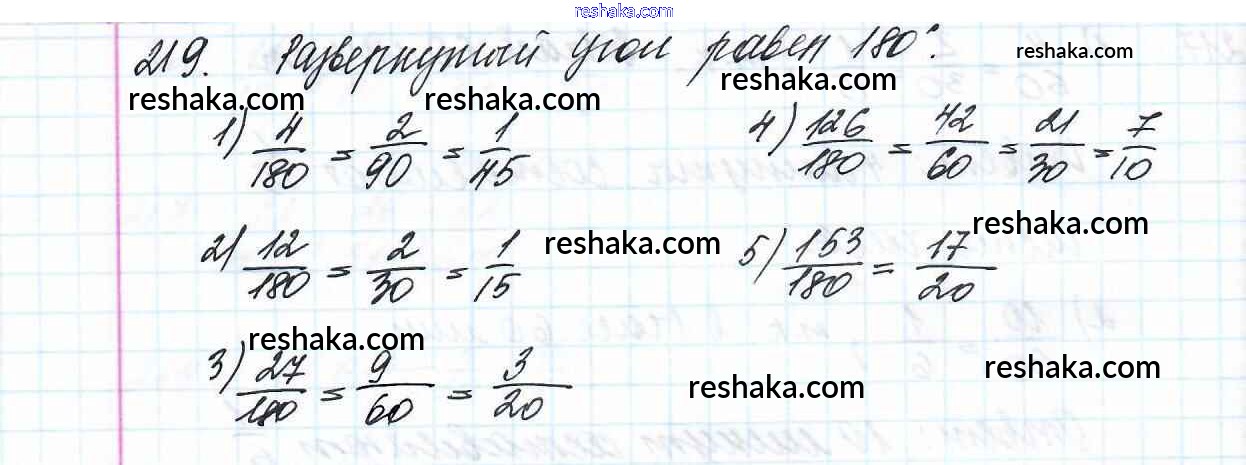 reshaka.com
219. Развернутый угол равен 180°.
reshaka.com
reshaka.com reshaka.com reshaka.com
1) 4/180 = 2/90 = 1/45
4) 126/180 = 42/60 = 21/30 = 7/10
reshaka.com
2) 12/180 = 2/30 = 1/15
reshaka.com
5) 153/180 = 17/20
reshaka.com
3) 27/180 = 9/60 = 3/20
reshaka.com
reshaka.com